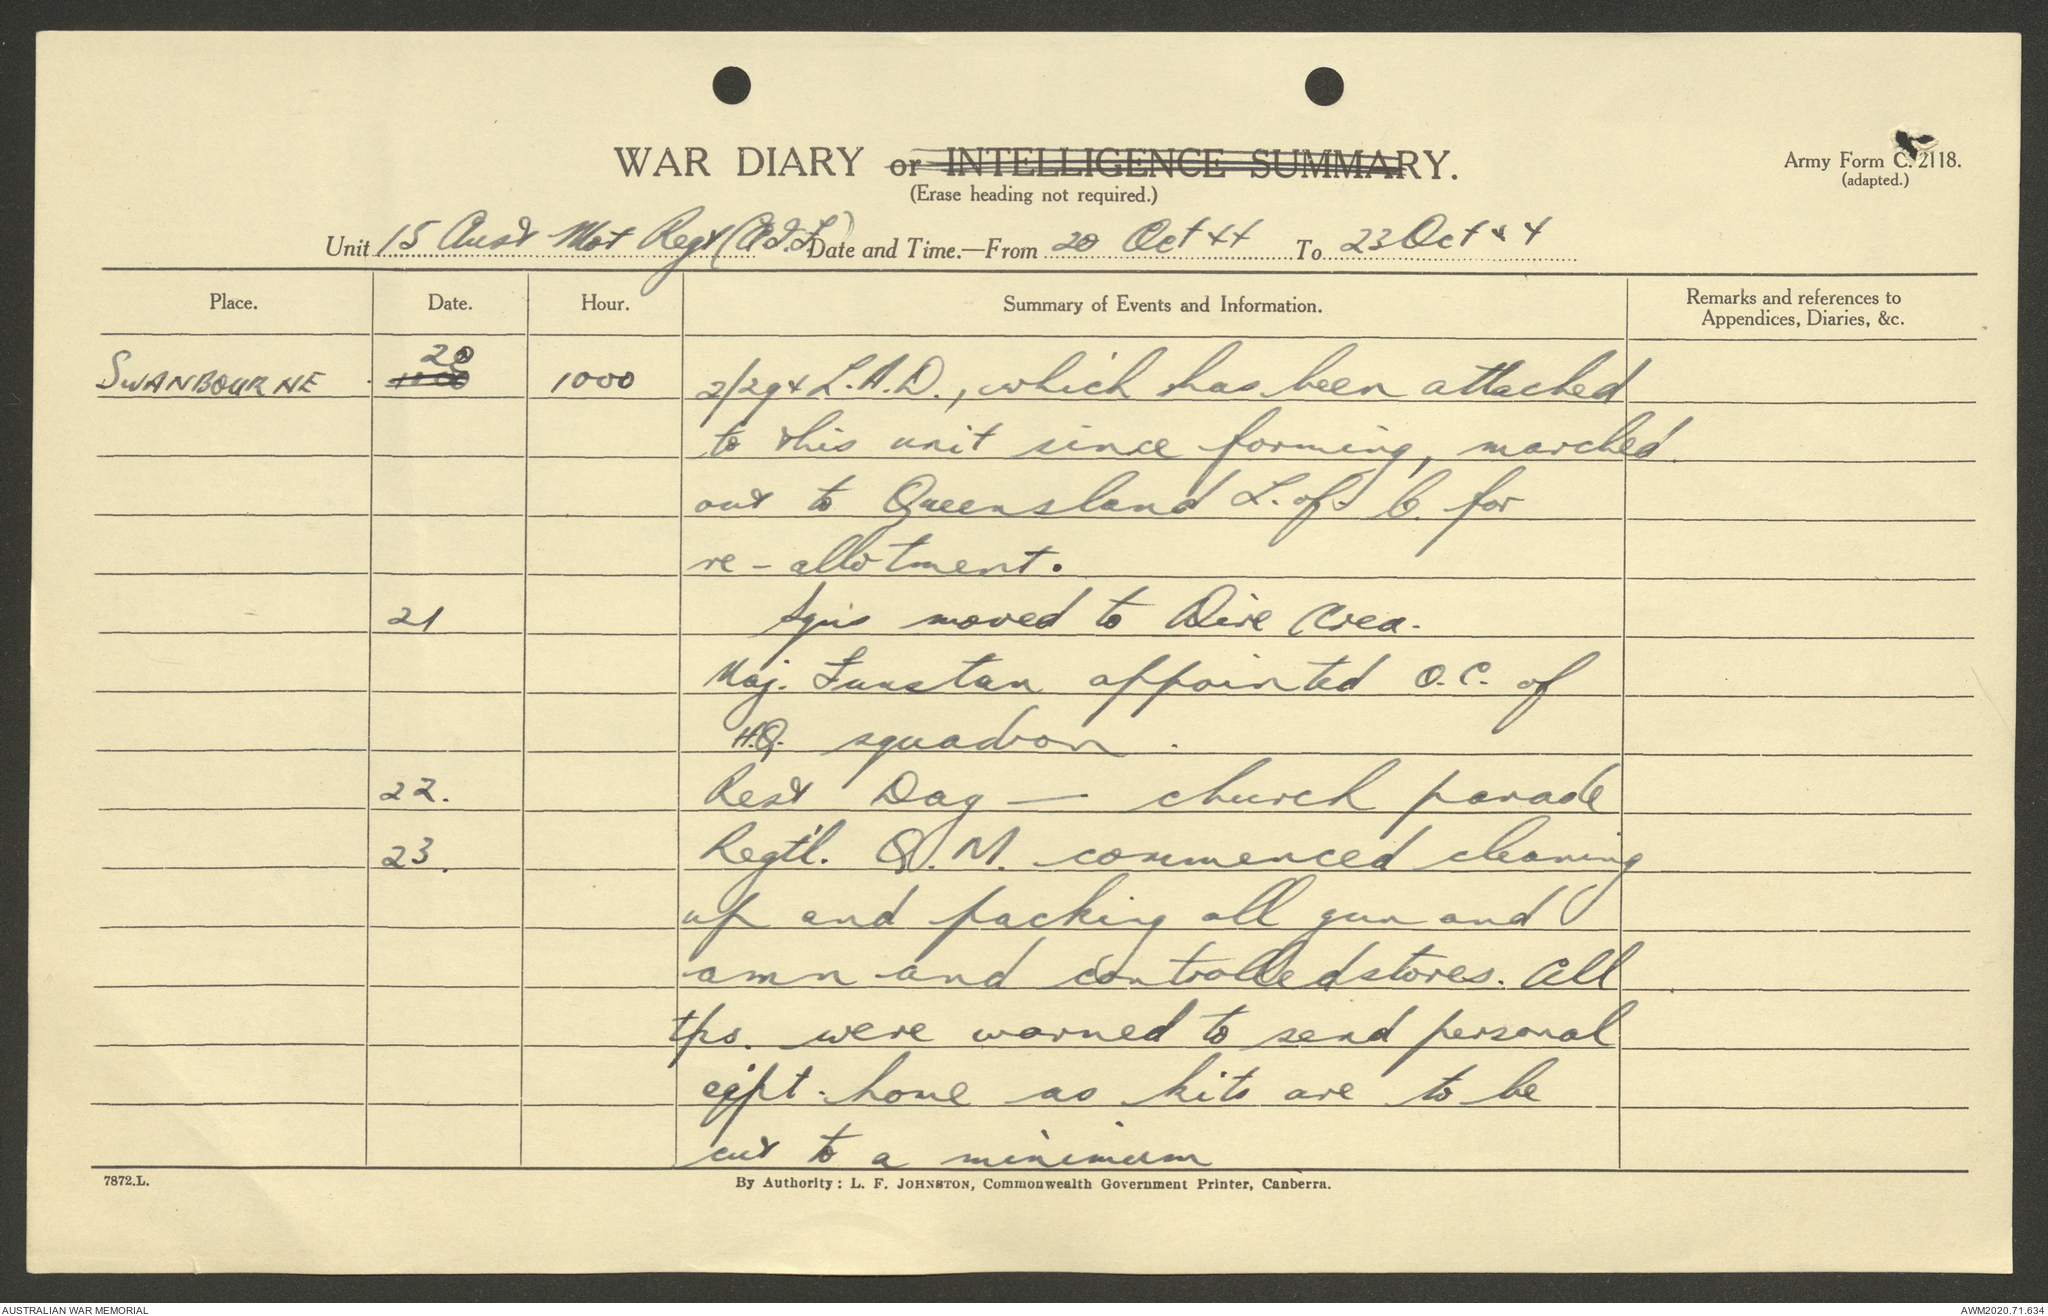 WAR DIARY or INTELLIGENCE SUMMARY.
(Erase heading not required.)
Army Form C. 2118.
(adapted.)
Unit 15 Aust Mot Regt (A.I.F.) Date and Time.—From 20 Oct 44 To 23 Oct 44
Place. Date. Hour. Summary of Events and Information. Remarks and references to
Appendices, Diaries, &c.
SWANBOURNE 20 1000 2/29 L.A.D., which has been attached
to this unit since forming, marched
out to Queensland L. of C. for
re-allotment.
21 Sqns moved to Dire Area.
Maj. Funstan appointed O.C. of
H.Q. squadron.
22. Rest Day — church parade
23. Regt'l. Q.M. commenced cleaning
up and packing all gun and
amn and controlled stores. All
tps. were warned to send personal
eqpt. home as kits are to be
cut to a minimum
7872.L.
By Authority: L. F. JOHNSTON, Commonwealth Government Printer, Canberra.
AUSTRALIAN WAR MEMORIAL
AWM2020.71.634